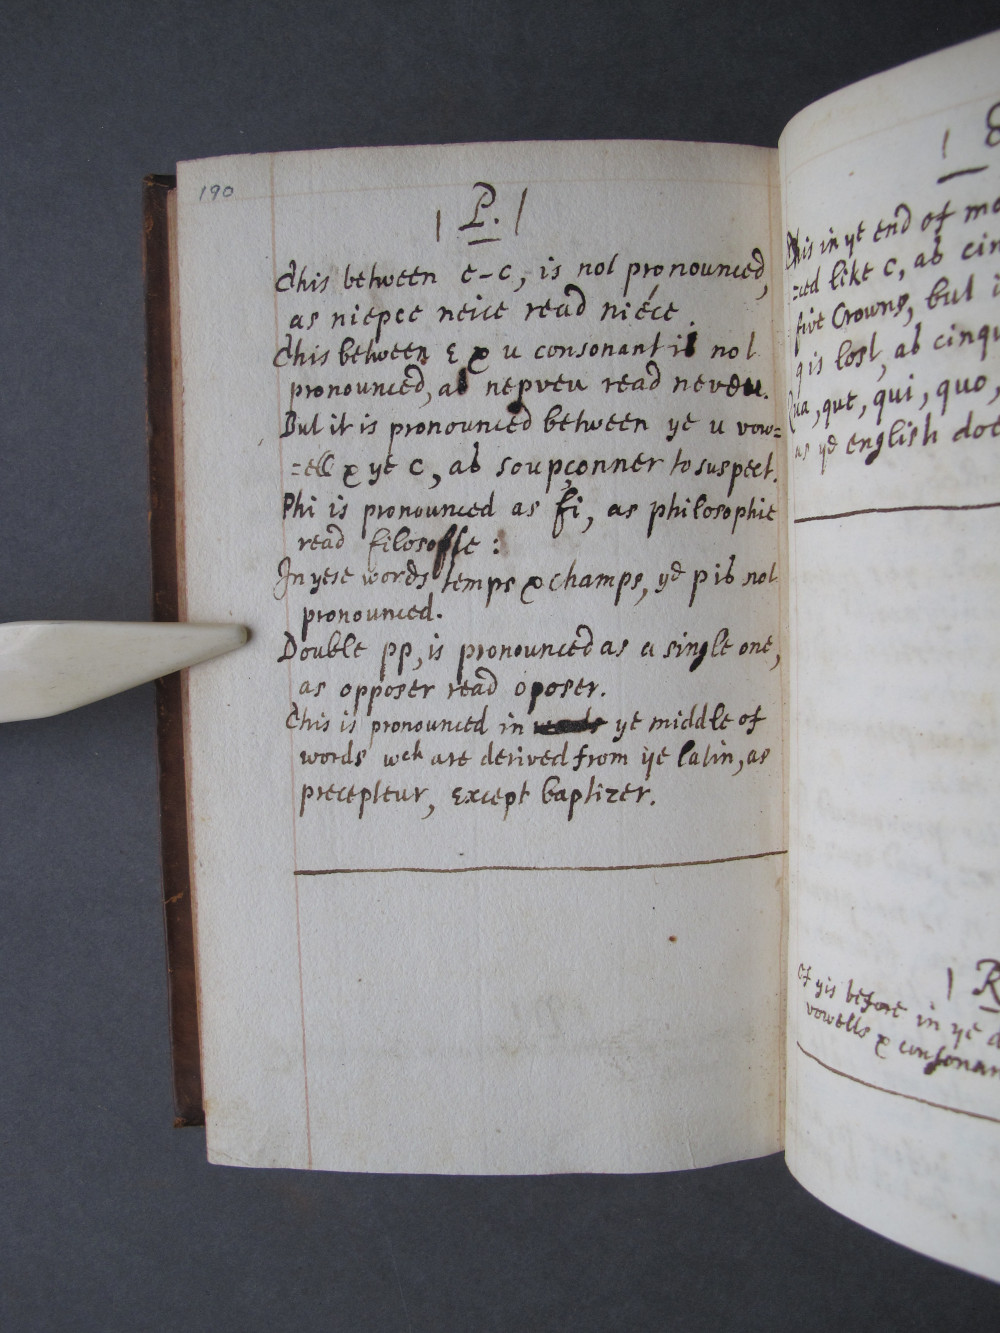 190
| P. |
This between e-c, is not pronounced,
as niepce neice read niéce.
This between E & u consonant is not
pronounced, as nepveu read neveu.
But it is pronounced between ye u vow=
=ell & ye c, as soupçonner to suspect.
Phi is pronounced as fi, as philosophie
read filosofie:
In yese words temps & champs, ye p is not
pronounced.
Double pp, is pronounced as a single one,
as opposer read oposer.
This is pronounced in ye middle of
words wch are derived from ye latin, as
precepteur, Except baptizer.
This in ye end of
=ced like c, as
five Crowns, but
q is lost, as
Qua, que, qui, quo,
as ye english
| R
Of yis before in ye
vowells &